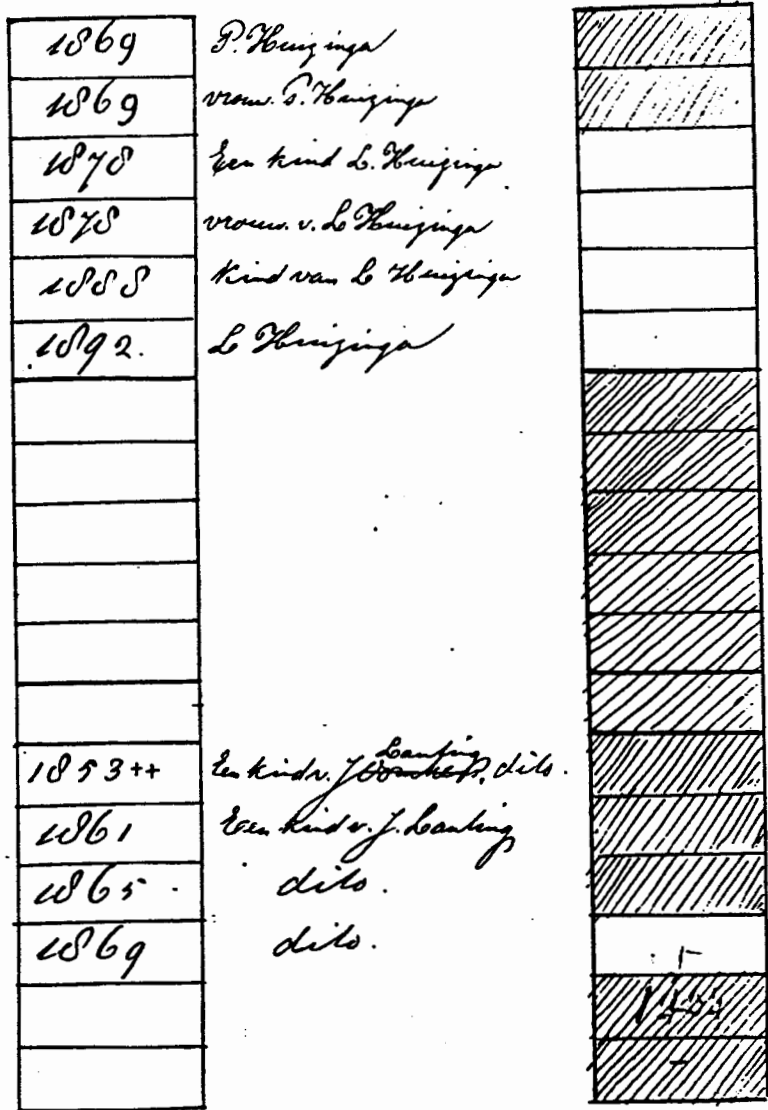 1869 P. Huizinga
1869 vrouw. P. Huizinga
1878 Een kind L. Huizinga
1878 vrouw. v. L Huizinga
1888 Kind van L Huizinga
1892. L Huizinga
Lanting
1853++ Een kind v. J dito.
1861 Een kind v. J. Lanting
1865 dito.
1869 dito.